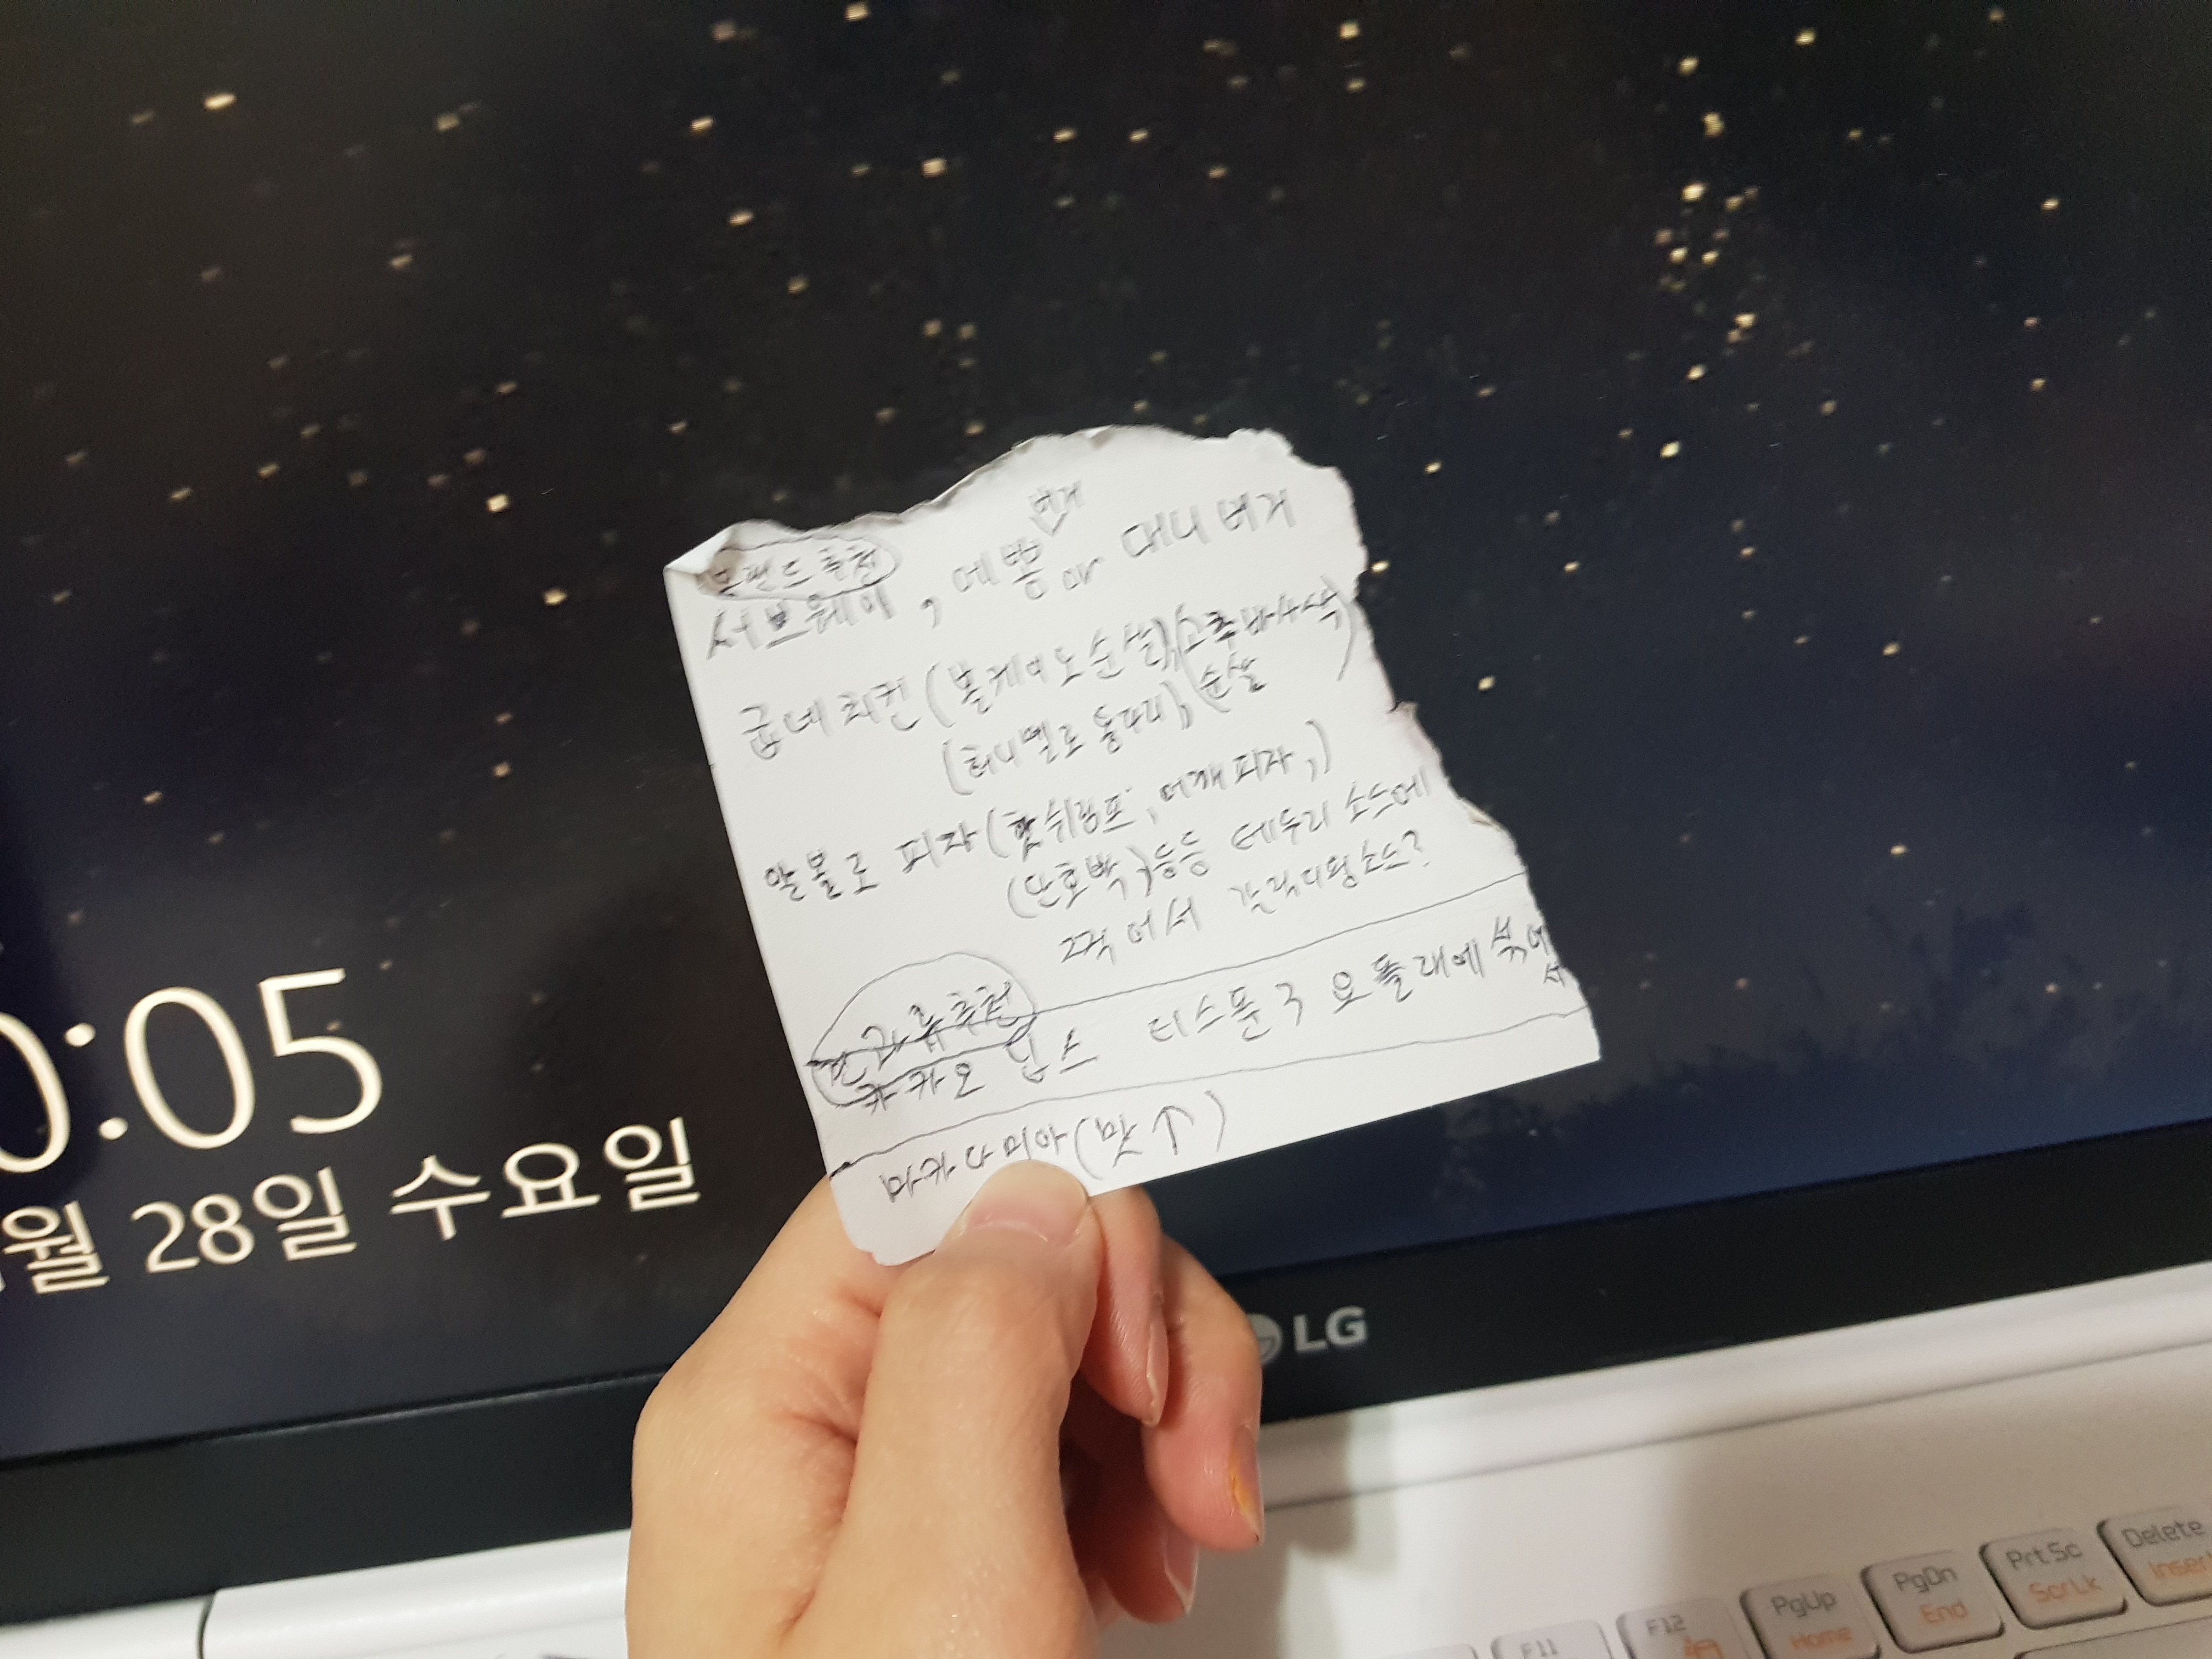 0:05
월 28일 수요일
버거
브랜드 추천
서브웨이, 에쁨 or 대니 버거
굽네 치킨 (볼케이노 순살), (고추바사삭)
(허니멜로 통다리), 순살
알볼로 피자 (핫쉬림프, 어깨피자,)
(단호박,) 등등 테두리 소스에
찍어서 갈릭디핑소스?
추천
카카오 닙스 티스푼 오플래에 섞어
서
LG
F11
F12
PgUp
Home
PgDn
End
Prt Sc
Scr Lk
Delete
Inser